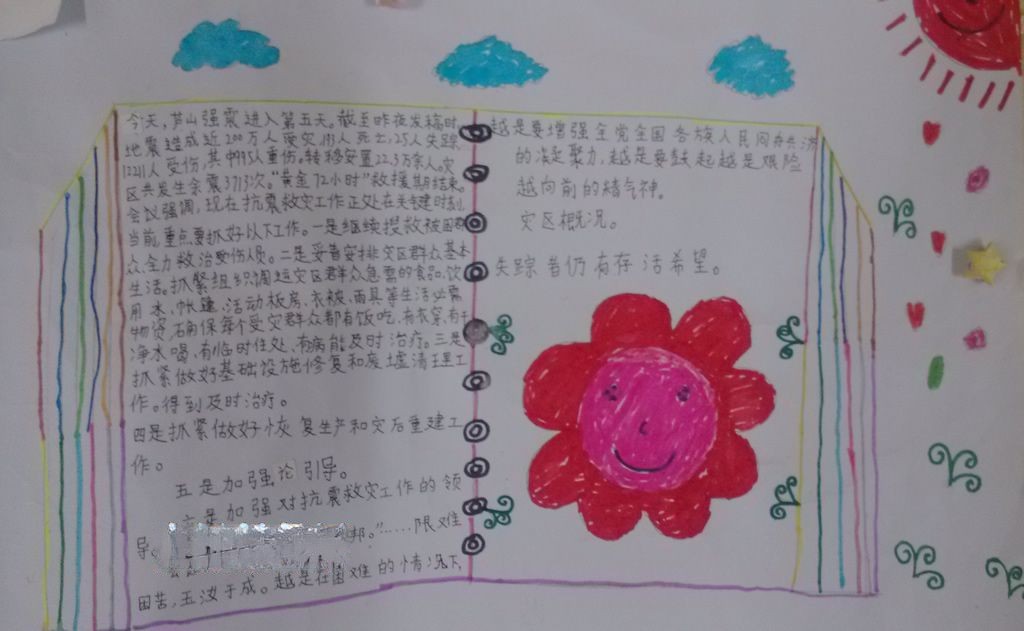 今天,芦山强震进入第五天。截至昨夜发稿时,
地震造成近200万人受灾,193人死亡,25人失踪,
12211人受伤,其中995人重伤。转移安置22.3万余人。灾
区共发生余震3713次。“黄金72小时”救援期结束。
会议强调,现在抗震救灾工作正处在关键时刻,
当前重点要抓好以下工作。一是继续搜救被困群
众,全力救治受伤人员。二是妥善安排灾区群众基本
生活。抓紧组织调运灾区群众急需的食品、饮
用水、帐篷、活动板房、衣被、雨具等生活必需
物资,确保每个受灾群众都有饭吃,有衣穿,有干
净水喝,有临时住处,有病能及时治疗。三是
抓紧做好基础设施修复和废墟清理工
作。得到及时治疗。
四是抓紧做好恢复生产和灾后重建工
作。
五是加强论引导。
六是加强对抗震救灾工作的领
导。
邦。”……限难
困苦,玉汝于成。越是在困难的情况下,
越是要增强全党全国各族人民同舟共济
的凝聚力,越是要鼓起越是艰险
越向前的精气神。
灾区概况。
失踪者仍有存活希望。